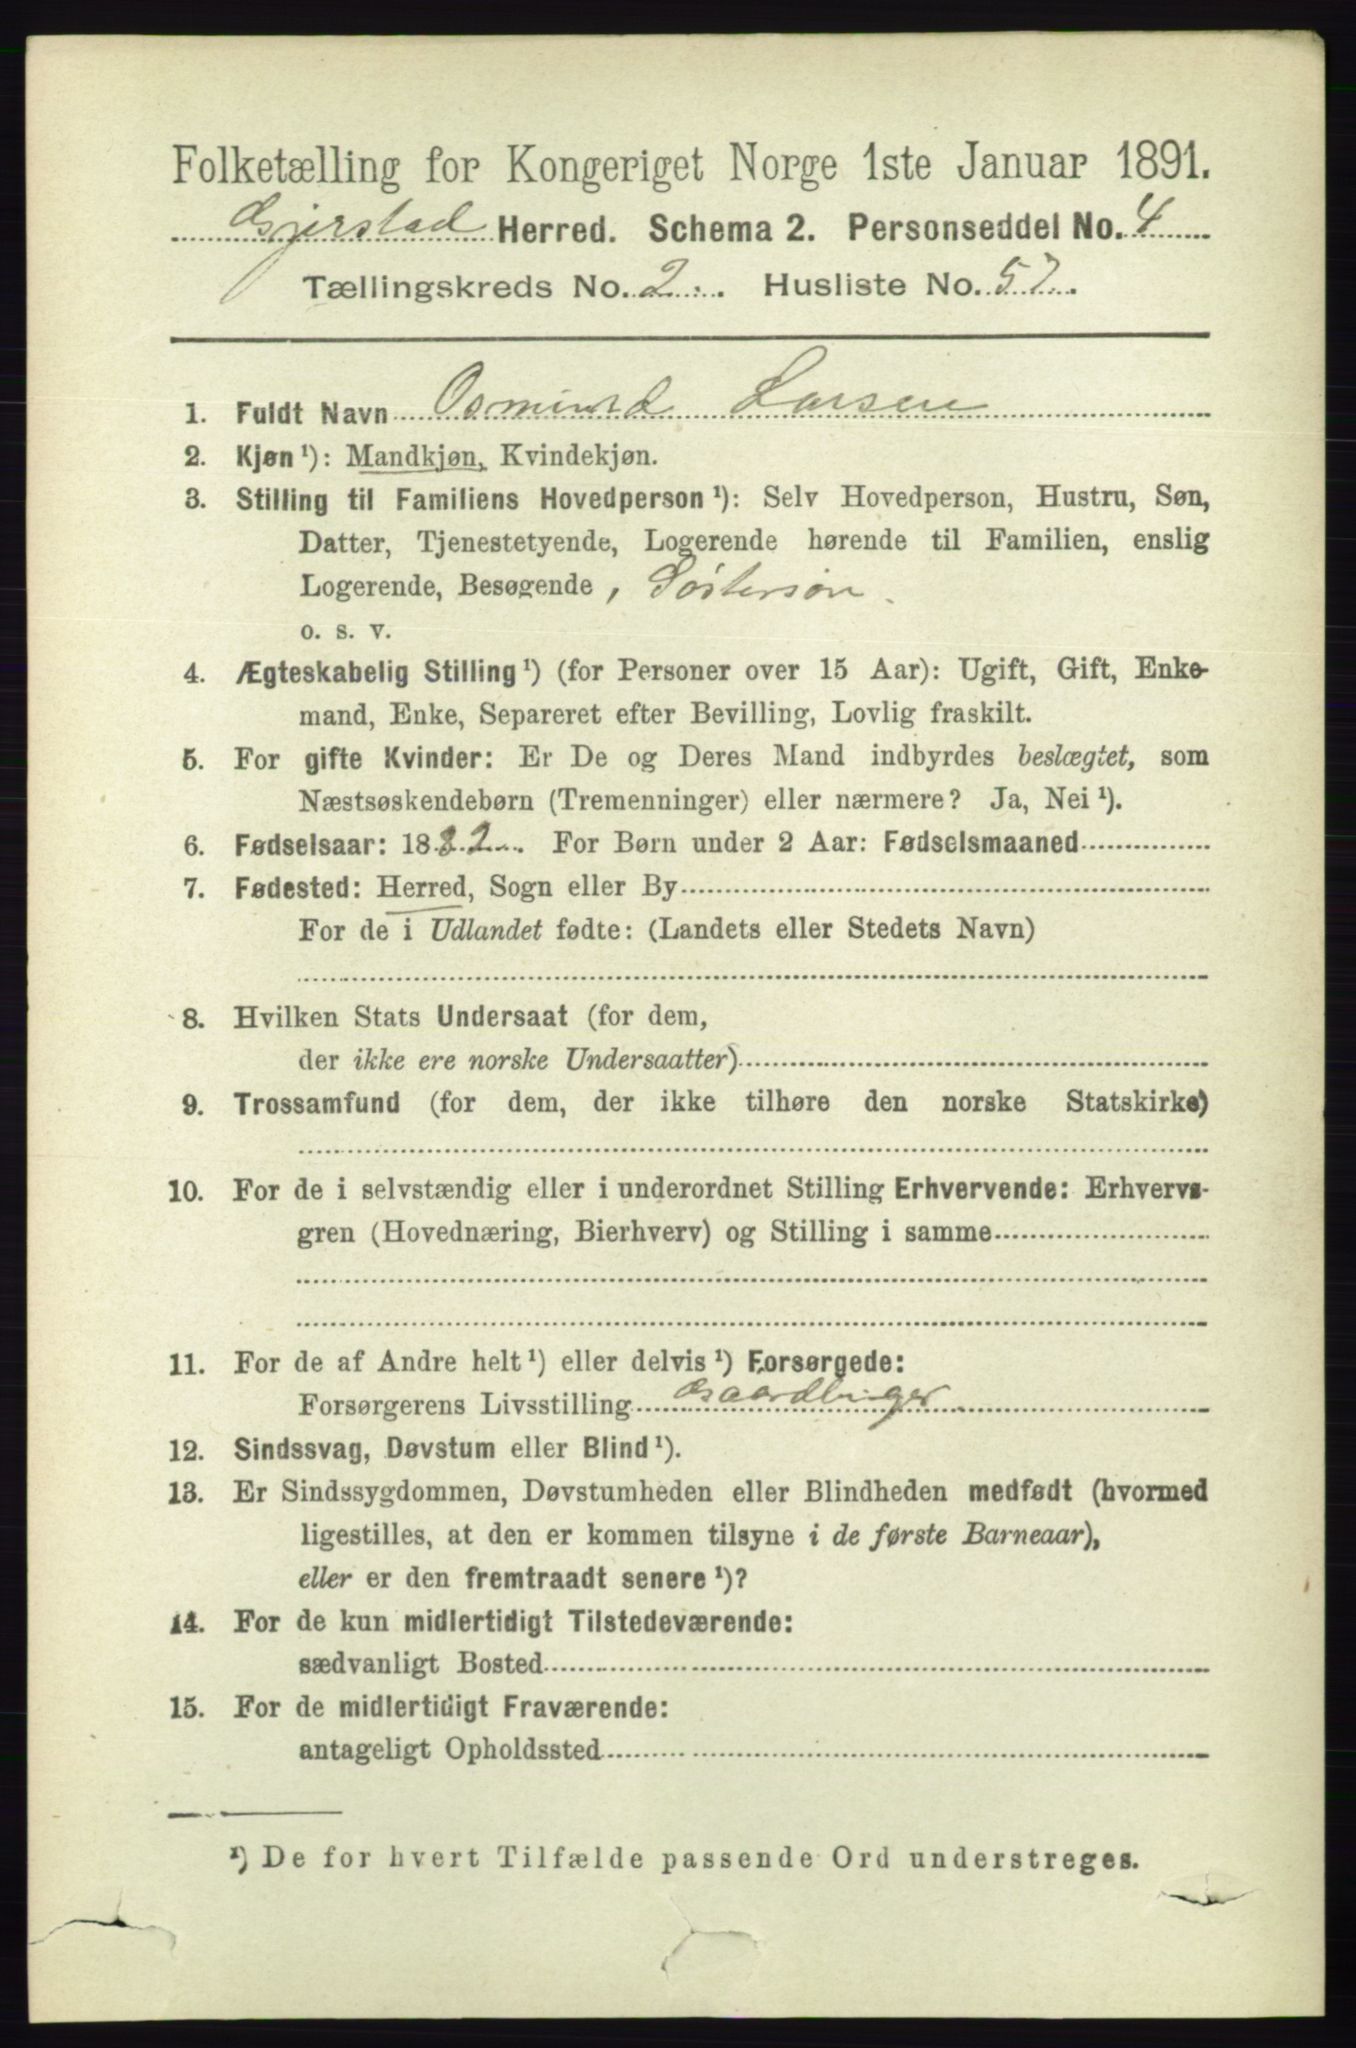 Folketælling for Kongeriget Norge 1ste Januar 1891.
Gjerstad Herred. Schema 2. Personseddel No. 4
Tællingskreds No. 2. Husliste No. 57.
1. Fuldt Navn Osmund Larsen
2. Kjøn ¹): Mandkjøn, Kvindekjøn.
3. Stilling til Familiens Hovedperson ¹): Selv Hovedperson, Hustru, Søn,
Datter, Tjenestetyende, Logerende hørende til Familien, enslig
Logerende, Besøgende, Søstersøn.
o. s. v.
4. Ægteskabelig Stilling ¹) (for Personer over 15 Aar): Ugift, Gift, Enke-
mand, Enke, Separeret efter Bevilling, Lovlig fraskilt.
5. For gifte Kvinder: Er De og Deres Mand indbyrdes beslægtet, som
Næstsøskendebørn (Tremenninger) eller nærmere? Ja, Nei ¹).
6. Fødselsaar: 1882. For Børn under 2 Aar: Fødselsmaaned
7. Fødested: Herred, Sogn eller By
For de i Udlandet fødte: (Landets eller Stedets Navn)
8. Hvilken Stats Undersaat (for dem,
der ikke ere norske Undersaatter)
9. Trossamfund (for dem, der ikke tilhøre den norske Statskirke)
10. For de i selvstændig eller i underordnet Stilling Erhvervende: Erhvervs-
gren (Hovednæring, Bierhverv) og Stilling i samme
11. For de af Andre helt ¹) eller delvis ¹) Forsørgede:
Forsørgerens Livsstilling Gaardbruger
12. Sindssvag, Døvstum eller Blind ¹).
13. Er Sindssygdommen, Døvstumheden eller Blindheden medfødt (hvormed
ligestilles, at den er kommen tilsyne i de første Barneaar),
eller er den fremtraadt senere ¹)?
14. For de kun midlertidigt Tilstedeværende:
sædvanligt Bosted
15. For de midlertidigt Fraværende:
antageligt Opholdssted
¹) De for hvert Tilfælde passende Ord understreges.